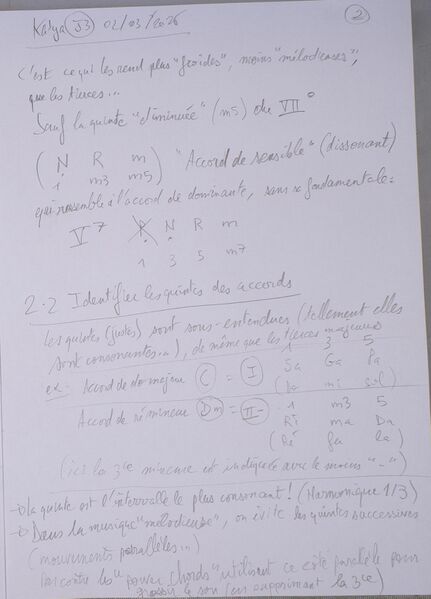 Katya J3 02/03/2026 2
C'est ce qui les rend plus "froides", moins "mélodieuses",
que les tierces...
Sauf la quinte "diminuée" (m5) du VII°
( N R m ) "Accord de sensible" (dissonant)
1 m3 m5
qui ressemble à l'accord de dominante, sans sa fondamentale:
V7 P N R m
1 3 5 m7
2.2 Identifier les quintes des accords
Les quintes (justes) sont sous-entendues (tellement elles
sont consonantes...), de même que les tierces majeures
1 3 5
ex: Accord de do majeur C = I Sa Ga Pa
(do mi sol)
Accord de ré mineur Dm = II- 1 m3 5
Ri ma Da
(Ré fa la)
(ici la 3ce mineure est indiquée avec le moins "-")
→ La quinte est l'intervalle le plus consonant! (Harmonique 1/3)
→ Dans la musique "mélodieuse", on évite les quintes successives
(mouvements parallèles...)
les "power chords" utilisent ce côté parallèle pour
grossir le son (en supprimant la 3ce)